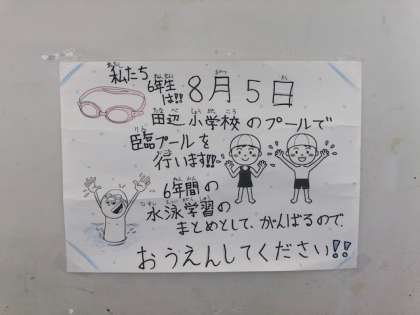 私たち
6年生は!! 8月5日
田辺小学校のプールで
臨臨プールを
行います!!!
6年間の
水泳学習の
まとめとして、がんばるので、
おうえんしてください!!